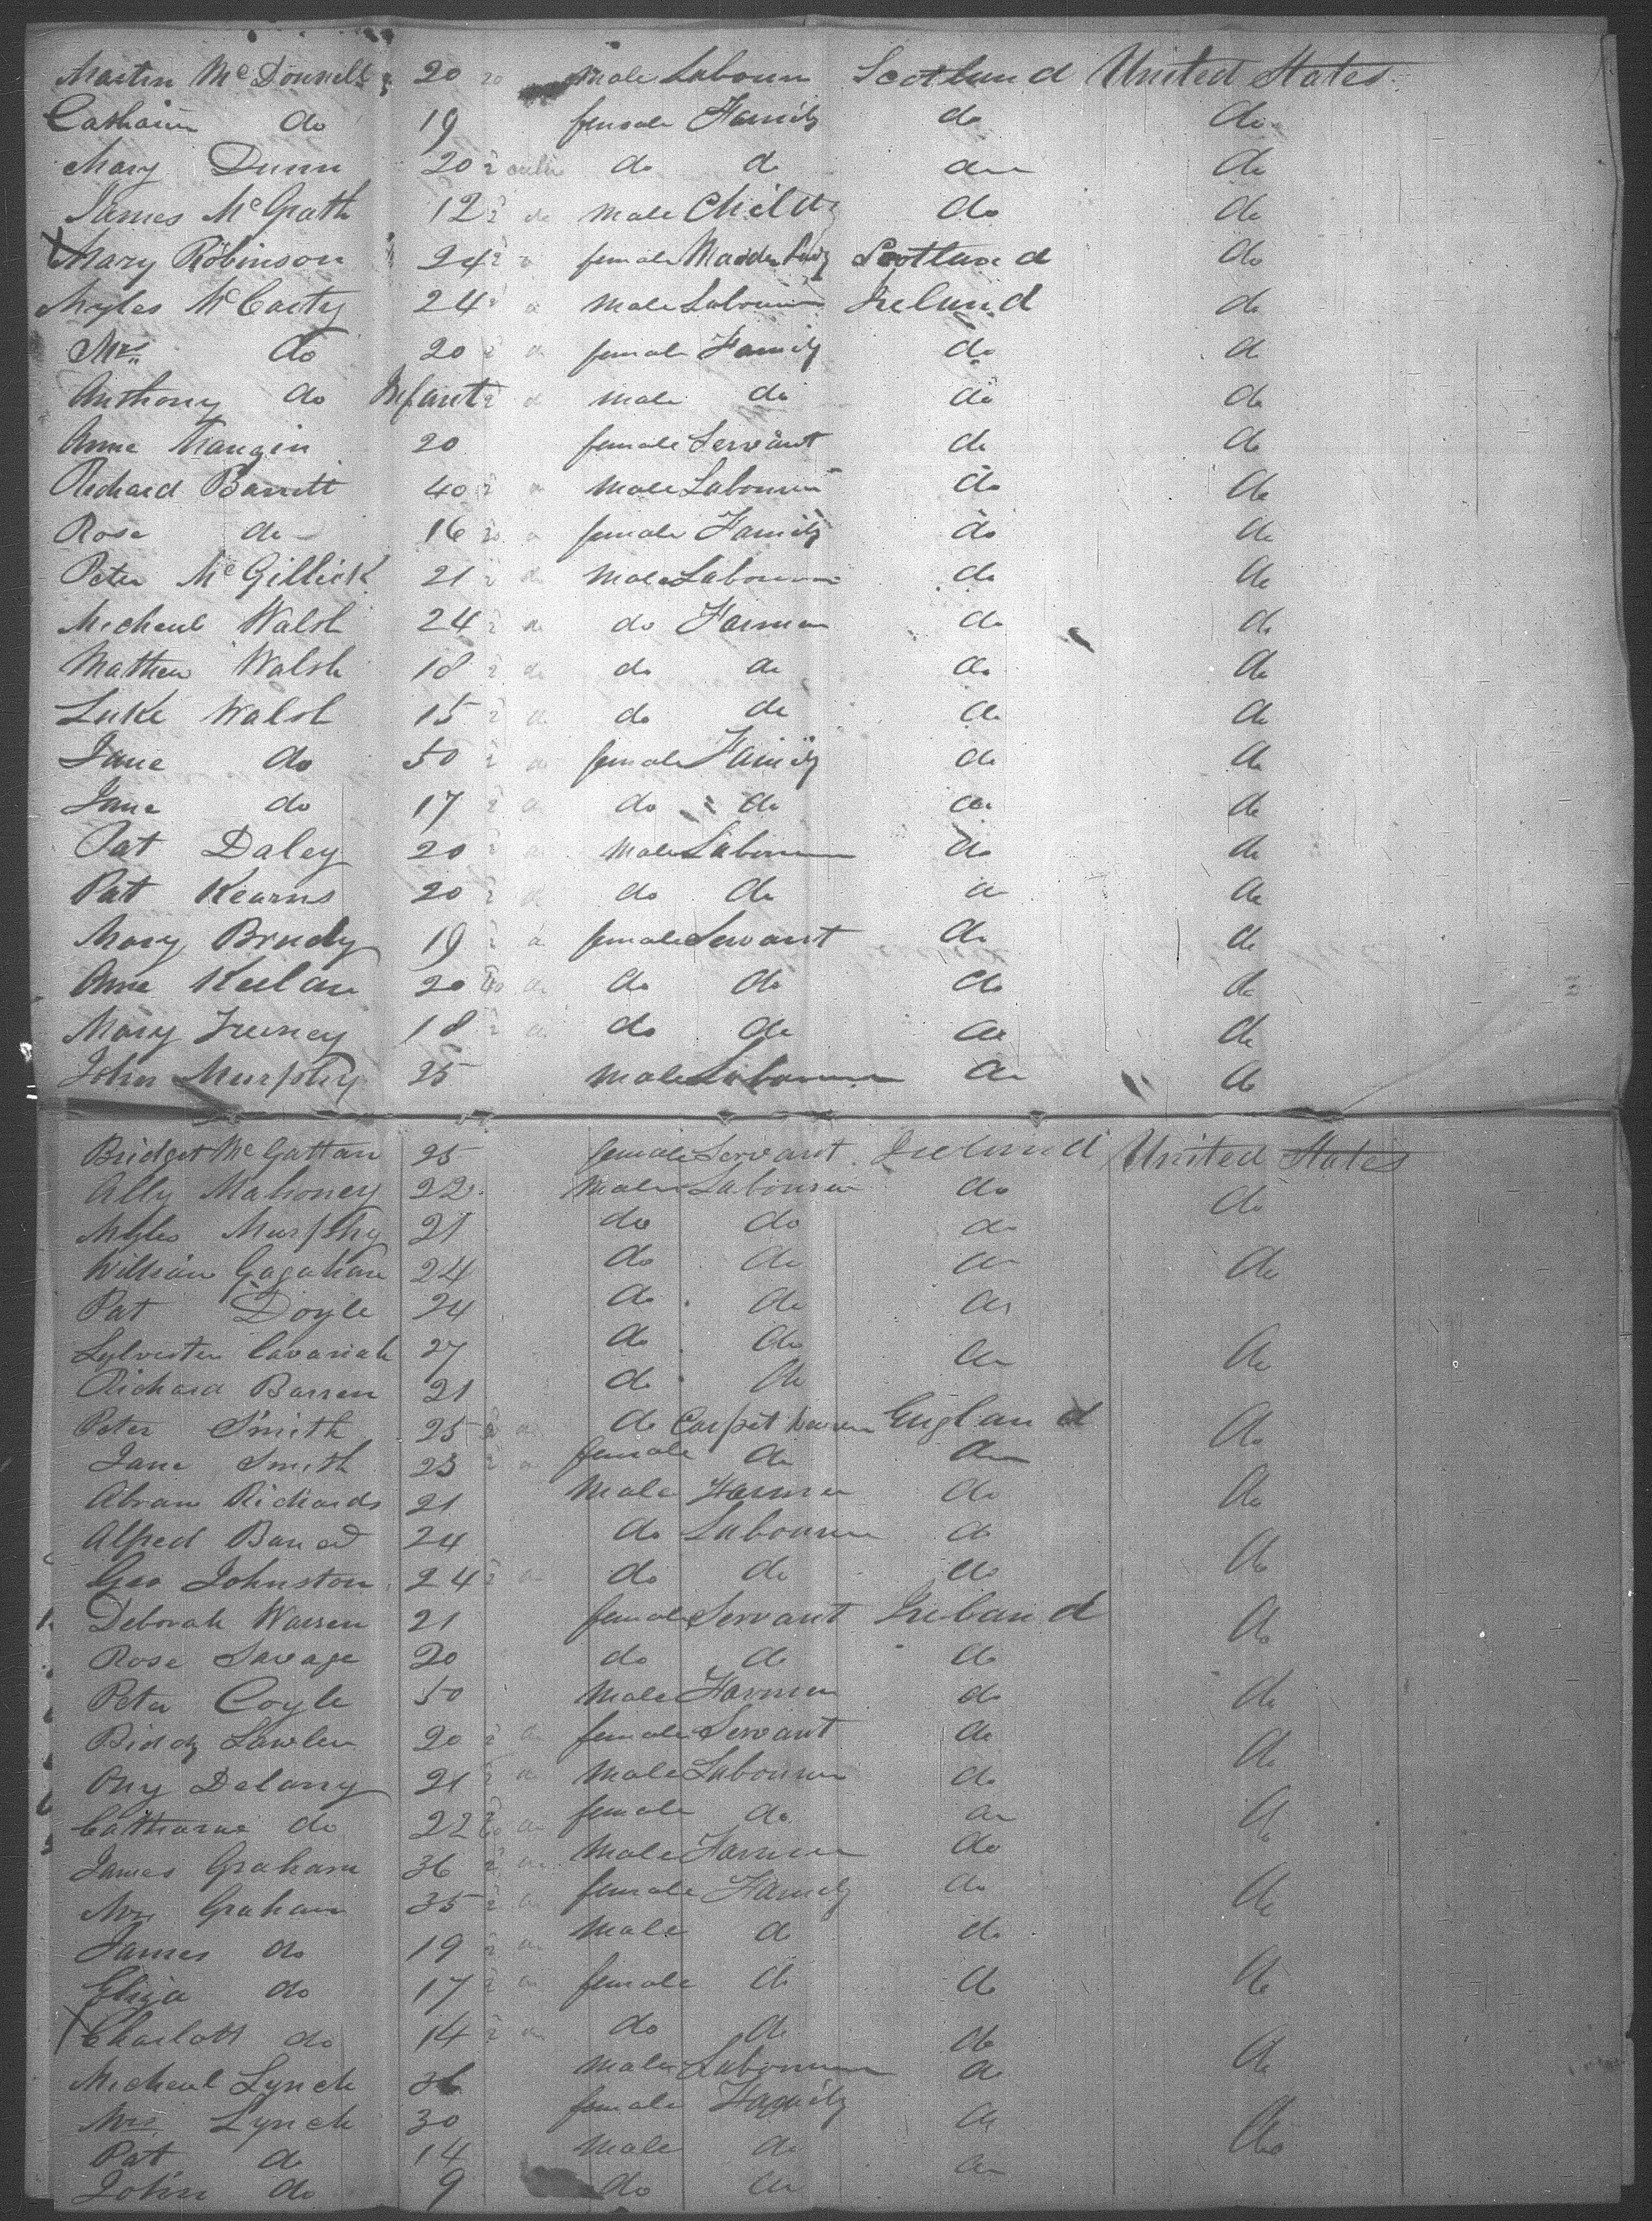 Martin McDonnell 20 male Labourer Scotland United States
Catharin do 19 female Family do do
Mary Dunn 20 do do do do
James McGrath 12 male Child do do
Mary Robinson 24 female Scotland do
Myles McCarty 24 male Labourer Ireland do
Mrs do 20 female Family do do
Anthony do Infant male do do do
Anne 20 female Servant do do
Richard Barrett 40 male Labourer do do
Rose do 16 female Family do do
Peter McGillick 21 male Labourer do do
Micheal Walsh 24 do Farmer do do
Mathew Walsh 18 do do do do
Luke Walsh 15 do do do do
Jane do 50 female Family do do
Jane do 17 do do do do
Pat Daley 20 male Labourer do do
Pat Kearns 20 do do do do
Mary Brady 19 female Servant do do
Anne Keelan 20 do do do do
Mary Freney 18 do do do do
John Murphy 25 male Labourer do do
Bridget McGattan 25 female Servant Ireland United States
Ally Mahoney 22 male Labourer do do
Myles Murphy 21 do do do
William Gagahan 24 do do do do
Pat Doyle 24 do do do
Sylvester Cavanah 27 do do do do
Richard Barren 21 do do
Peter Smith 25 do Carpet weaver England do
Jane Smith 23 female do do
Abram Richards 21 male Farmer do do
Alfred 24 do Labourer do
Geo Johnston 24 do do do do
Deborah Warren 21 female Servant Ireland do
Rose Savage 20 do do do
Peter Coyle 50 male Farmer do do
Biddy Lawler 20 female Servant do do
Delany 21 male Labourer do
Catharine do 22 female do do do
James Graham 36 male Farmer do
Mrs Graham 35 female Family do do
James do 19 male do do
Eliza do 17 female do do do
Charlott do 14 do do do
Micheal Lynch 36 male Labourer do do
Mrs Lynch 30 female Family do
Pat do 14 male do do do
John do 9 do do